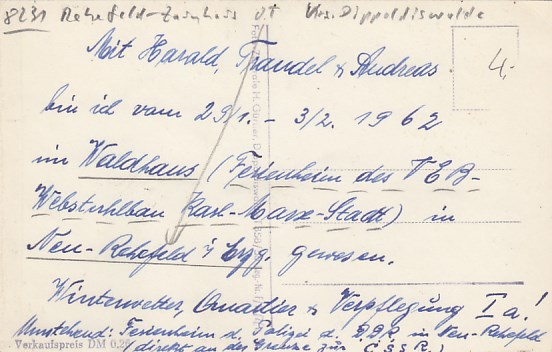 8231 Rehefeld-Zaunhaus Krs. Dippoldiswalde
4,-
Mit Harald, Traudel & Andreas
bin ich vom 29/1. - 3/2. 1962
im Waldhaus (Ferienheim des VEB-
Webstuhlbau Karl-Marx-Stadt) in
Neu-Rehefeld i/ Erzg. gewesen.
Winterwetter, Quartier & Verpflegung Ia!
Umstehend: Ferienheim d. Polizei d. DDR in Neu-Rehefeld
(direkt an der Grenze zur ČSSR.)
Verkaufspreis DM 0,20